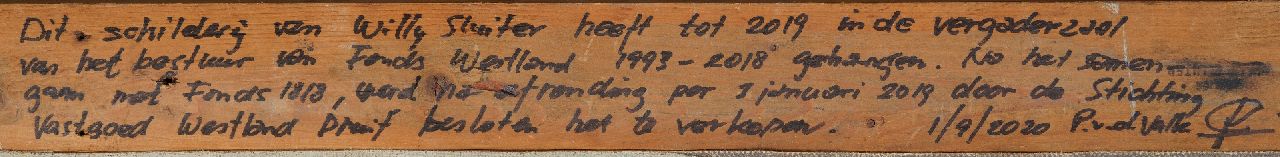 Dit schilderij van Willy Sluiter heeft tot 2019 in de vergaderzaal
van het bestuur van Fonds Westland 1993-2018 gehangen. Na het samen-
gaan met Fonds 1818, werd na afronding per 3 januari 2019 door de Stichting
Vastgoed Westland Druif besloten het te verkopen. 1/9/2020 P.v.d. Valk